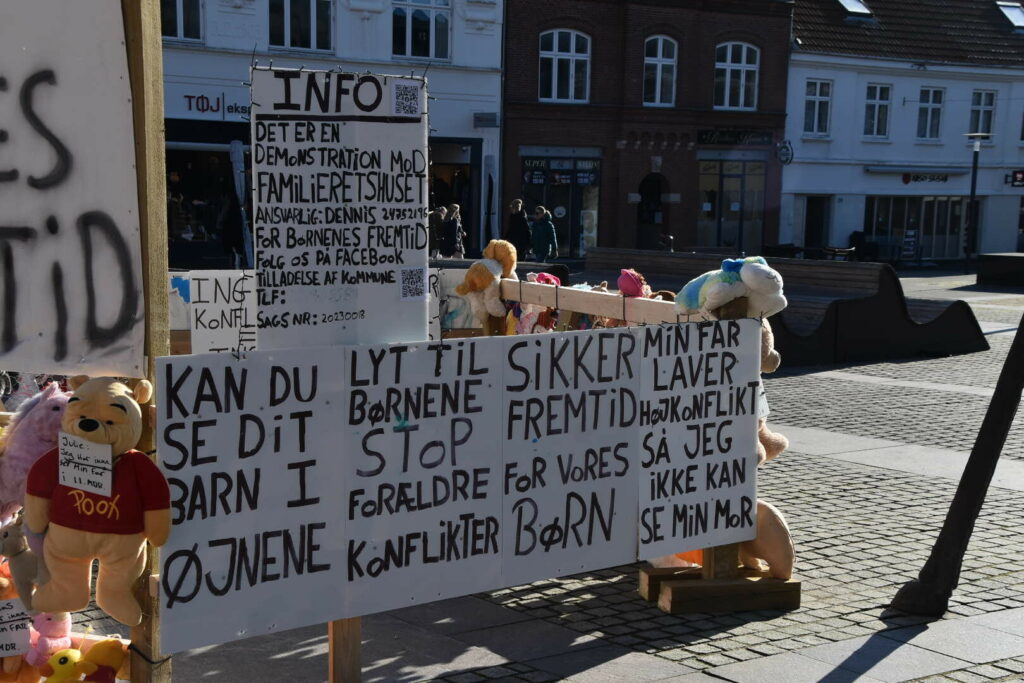 ES
TID
TØJ eksp
INFO
DET ER EN
DEMONSTRATION MOD
FAMILIERETSHUSET
ANSVARLIG: DENNIS 24752196
FOR BØRNENES FREMTID
FØLG OS PÅ FACEBOOK
TILLADELSE AF KOMMUNE
TLF:
SAGS NR: 20230018
ING
KONFL
KAN DU
SE DIT
BARN I
ØJNENE
LYT TIL
BØRNENE
STOP
FORÆLDRE
KONFLIKTER
SIKKER
FREMTID
FOR VORES
BØRN
MIN FAR
LAVER
HØJKONFLIKT
SÅ JEG
IKKE KAN
SE MIN MOR
Julie:
Jeg har ikke
set Min Far
i 11. MDR.
Pooh